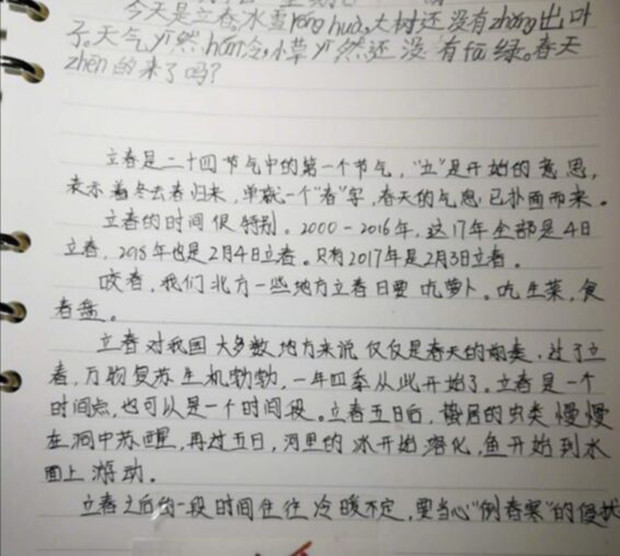 今天是立春,冰雪rónghuà,大树还没有zhǎng出叶
子。天气仍然hán冷,小草仍然还没有fā绿。春天
zhēn的来了吗?
立春是二十四节气中的第一个节气,"立"是开始的意思,
表示着冬去春归来,单就一个"春"字,春天的气息已扑面而来。
立春的时间很特别。2000-2016年,这17年全部是4日
立春,2018年也是2月4日立春。只有2017年是2月3日立春。
咬春,我们北方一些地方立春日要吃萝卜。吃生菜,食
春盘。
立春对我国大多数地方来说仅仅是春天的前奏,过了立
春,万物复苏生机勃勃,一年四季从此开始了。立春是一个
时间点,也可以是一个时间段。立春五日后,蛰居的虫类慢慢
在洞中苏醒,再过五日,河里的冰开始溶化,鱼开始到水
面上游动。
立春之后的一段时间往往冷暖不定,要当心"倒春寒"的侵扰